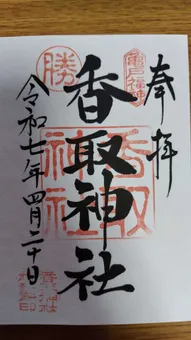 奉拝
亀戸福神
勝
香取神社
香取神社
令和七年四月二十日